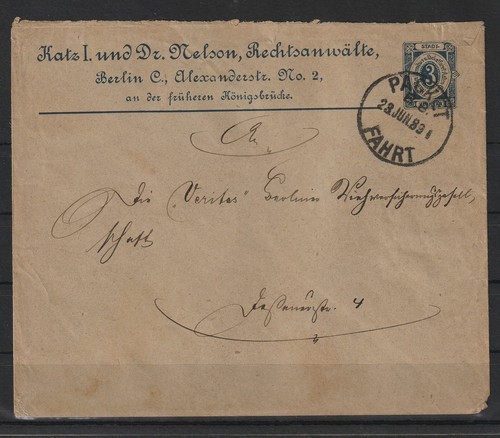 Katz I. und Dr. Nelson, Rechtsanwälte,
Berlin C., Alexanderstr. No. 2,
an der früheren Königsbrücke.
STADT
3
PACKET
23.JUN.89
FAHRT
An
Die „Veritas“ Berliner Viehversicherungsgesell,
schaft
4